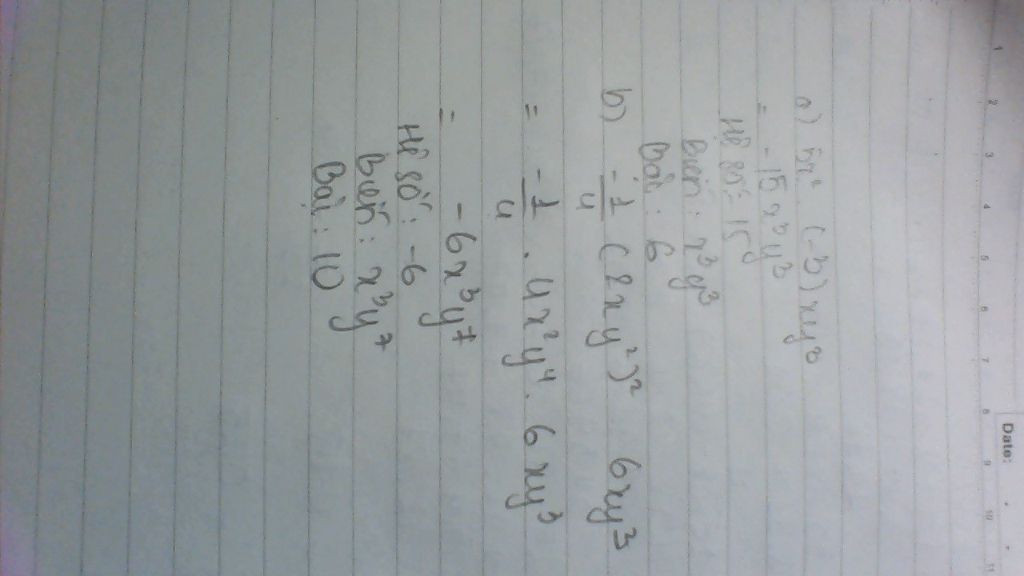 Date:
1 2 3 4 5 6 7 8 9 10 11
a) 5x² . (-3) xy³
= -15 x³y³
Hệ số: 15
Biến : x³y³
Bậc : 6
b) -1/4 (2xy²)² 6xy³
= -1/4 . 4x²y⁴ . 6xy³
= -6x³y⁷
Hệ số : -6
Biến : x³y⁷
Bậc : 10